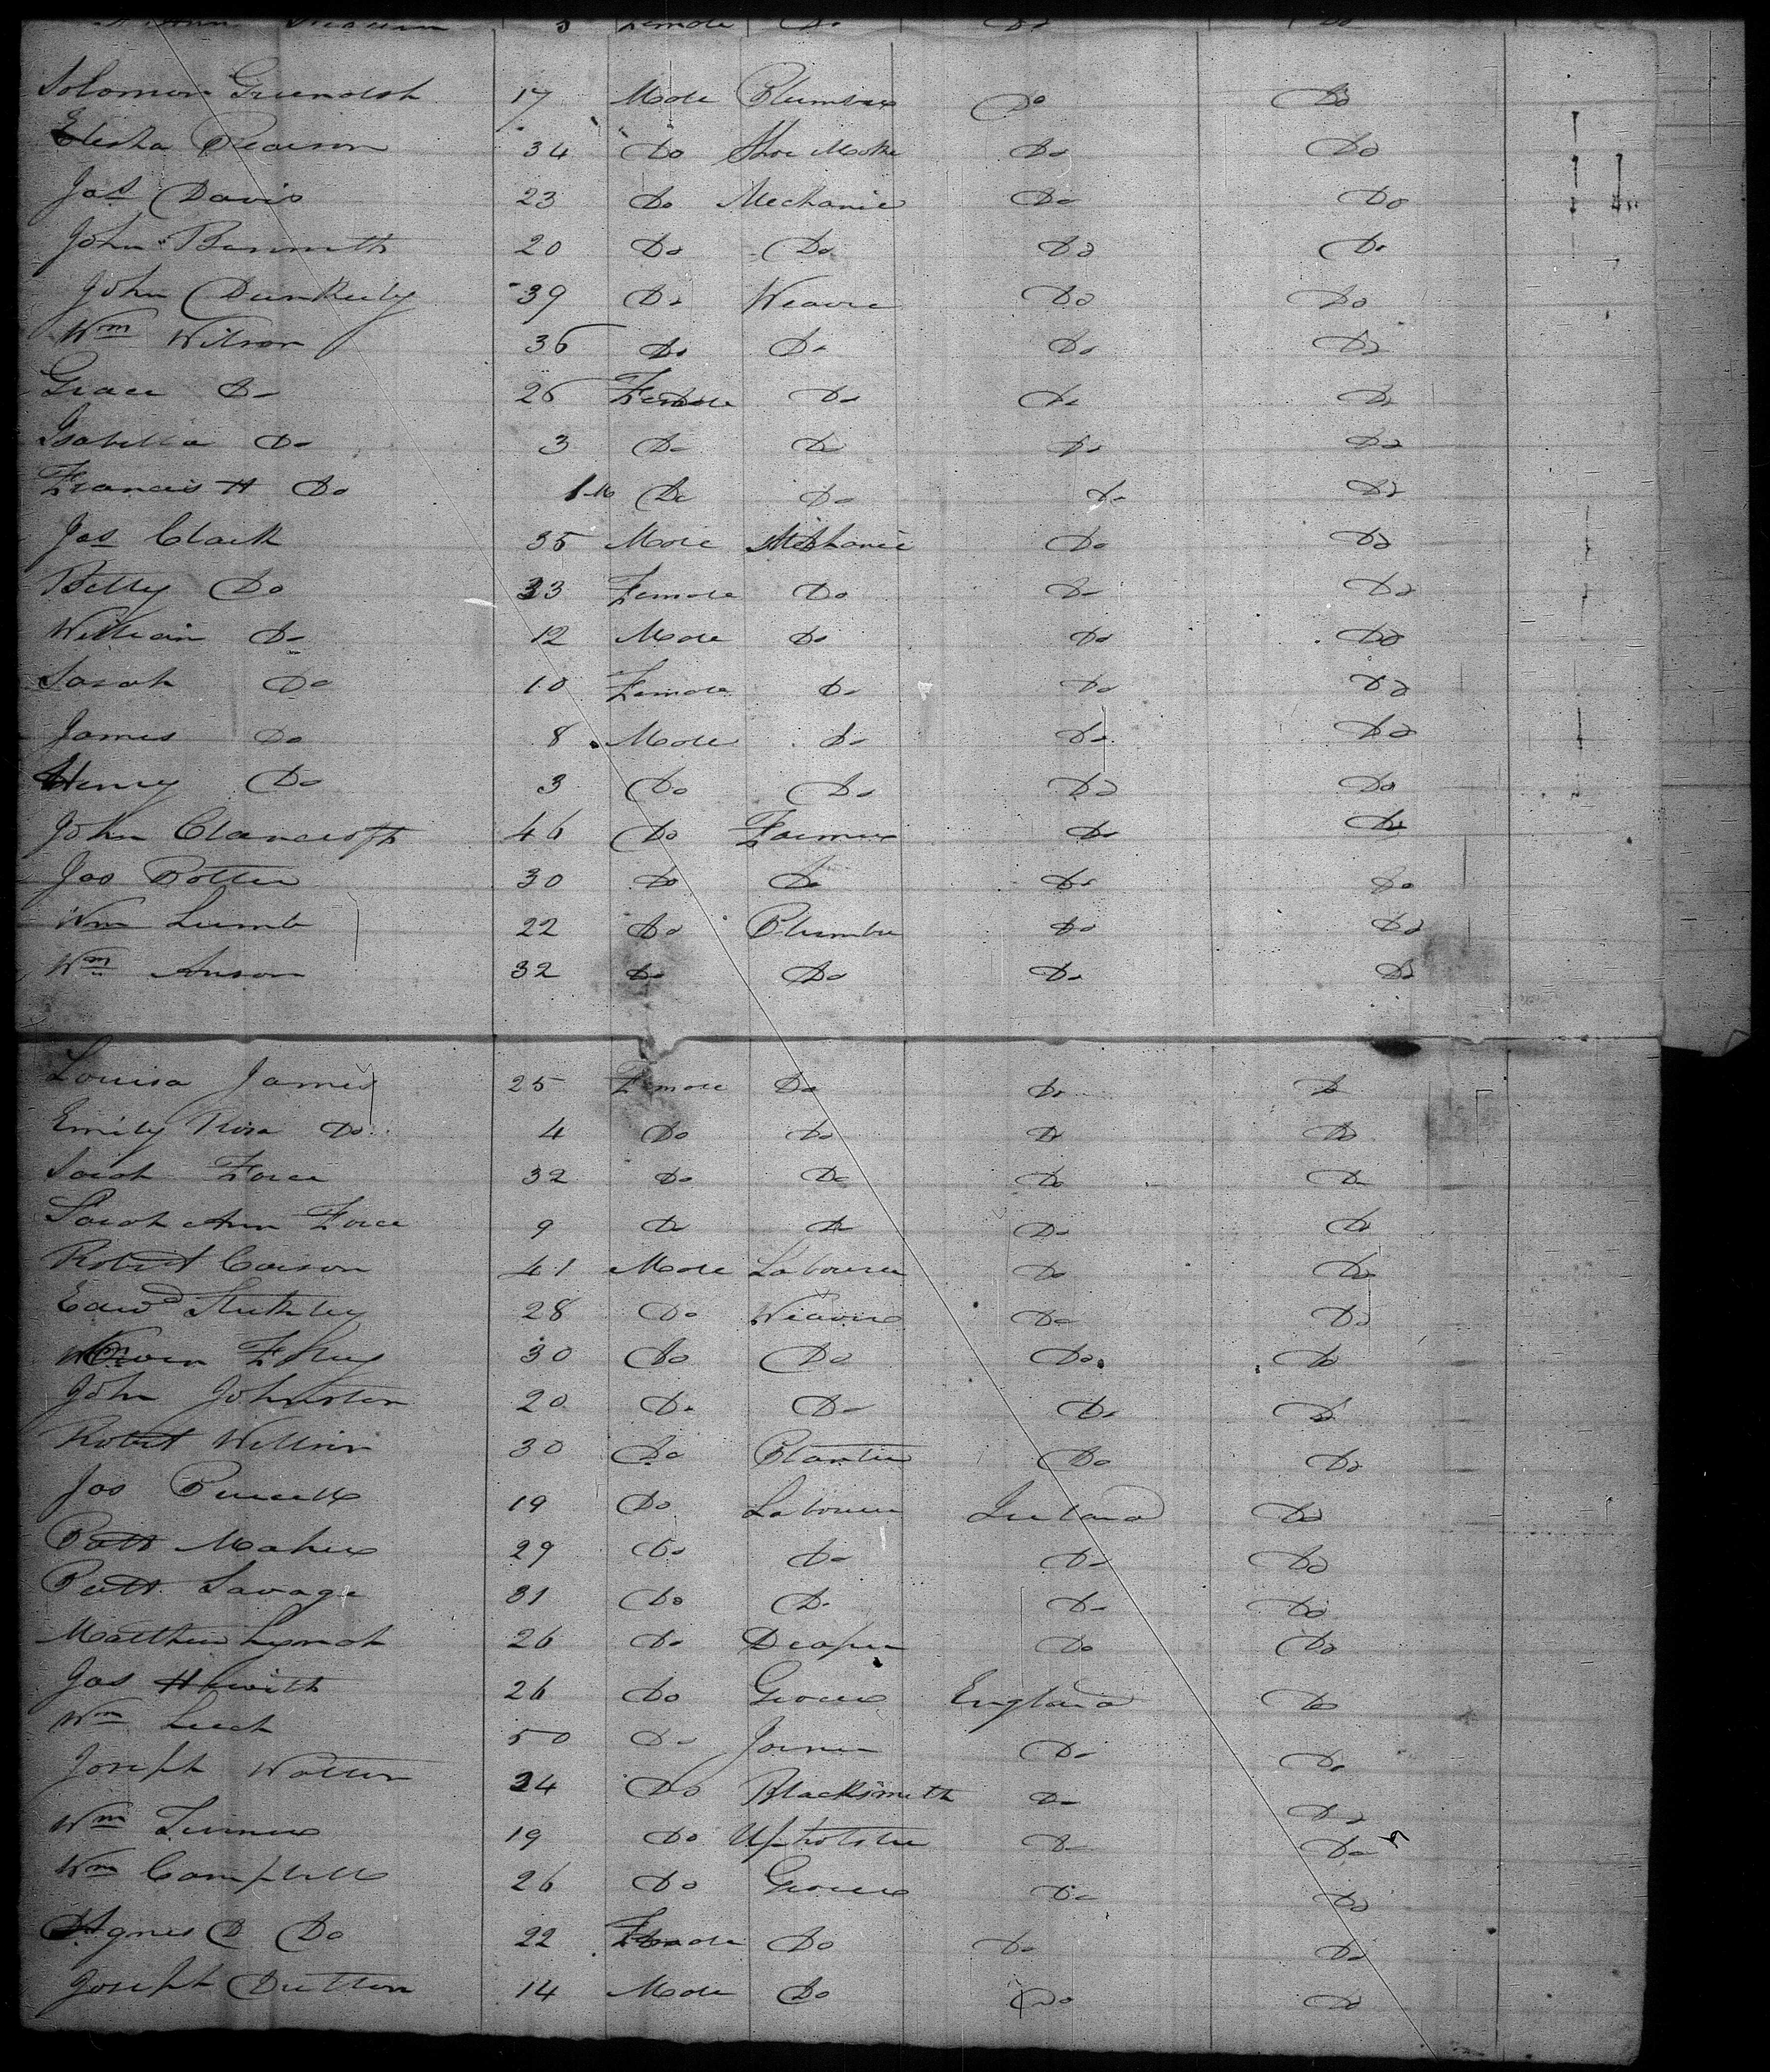 Female Do Do Do
Solomon 17 Male Plumber Do Do
Elisha Pearson 34 Do Shoe Make Do Do
Jas Davis 23 Do Mechanic Do Do
John Bennett 20 Do Do Do Do
John Dunkerly 39 Do Weaver Do Do
Wm Wilson 36 Do Do Do Do
Grace Do 26 Female Do Do Do
Isabella Do 3 Do Do Do Do
Francis H Do 1 M Do Do Do Do
Jas Clark 35 Male Mechanic Do Do
Betty Do 33 Female Do Do Do
William Do 12 Male Do Do Do
Sarah Do 10 Female Do Do Do
James Do 8 Male Do Do Do
Henry Do 3 Do Do Do Do
John Clancroft 46 Do Farmer Do Do
Jas Potter 30 Do Do Do Do
Wm Lumb 22 Do Plumber Do Do
Wm Anson 32 Do Do Do Do
Louisa James 25 Female Do Do Do
Emily Rosa Do 4 Do Do Do Do
Sarah Force 32 Do Do Do Do
Sarah Ann Force 9 Do Do Do Do
Robert Carson 41 Male Labourer Do Do
Edwd 28 Do Weaver Do Do
30 Do Do Do Do
John Johnston 20 Do Do Do Do
Robert 30 Do Do Do
Jas Purcell 19 Do Labourer Ireland Do
Patt Maher 29 Do Do Do Do
Patt Savage 31 Do Do Do Do
Matthew Lynch 26 Do Draper Do Do
Jas Hewitt 26 Do Grocer England Do
Wm Leech 50 Do Joiner Do Do
Joseph Watter 24 Do Blacksmith Do Do
Wm Turner 19 Do Upholster Do Do
Wm Campbell 26 Do Grocer Do Do
Agnes D Do 22 Female Do Do Do
Joseph Dutton 14 Male Do Do Do